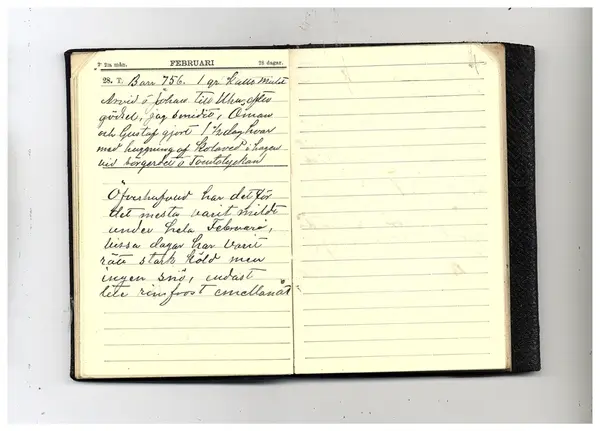 2:a mån. FEBRUARI 28 dagar.
28. T. Barr 756. 1 gr Kallt Mulet
Arvid o Johan till efter
gödsel, jag hemidt, Oman
och Gustaf gjort 1/2 dag hvar
med huggning af Stolaved i hagen
vid o
Öfverhufvud har det för
det mesta varit mildt
under hela Februari,
vissa dagar har varit
rätt stark köld men
ingen snö, endast
lite rimfrost emellanåt